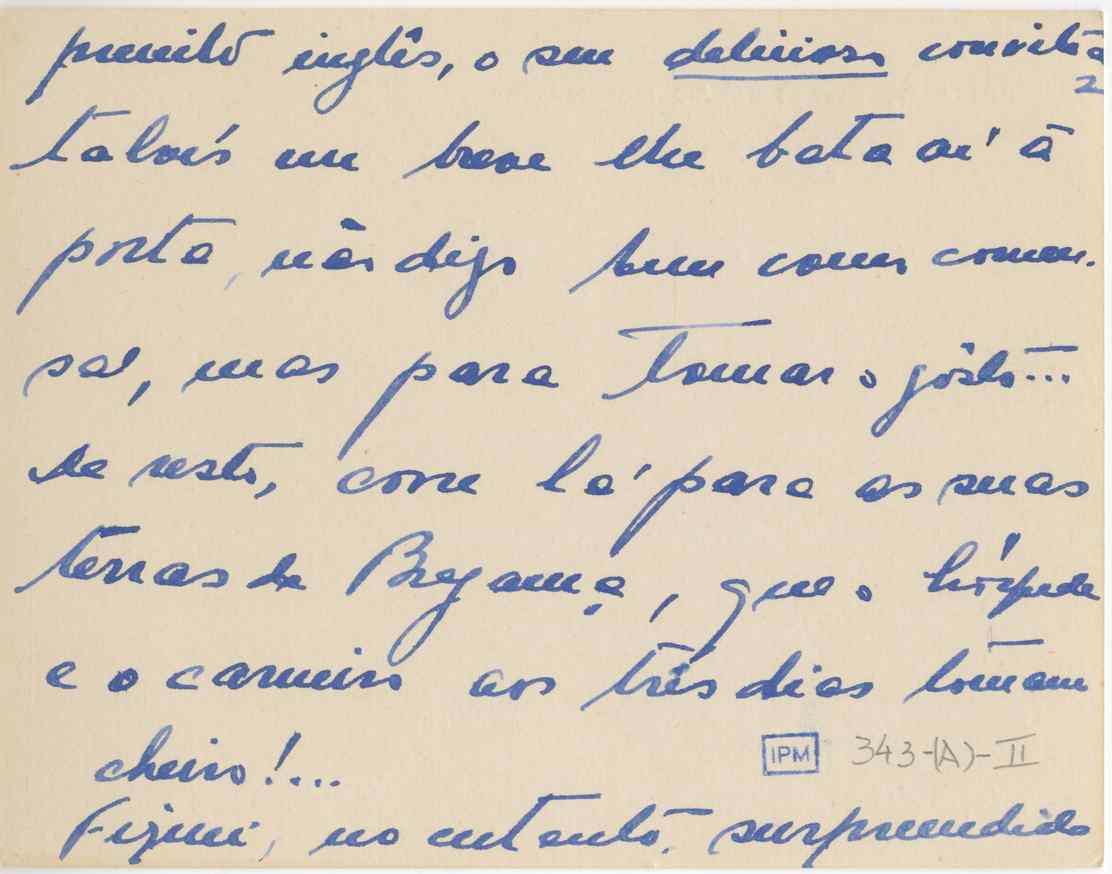 inglês, o seu delicioso convite e
talvês um breve lhe bata aí à
porta, não digo bem como comen-
sal, mas para tomar o gôsto...
de resto, corre lá para as suas
terras de Bragança, que o hóspede
e o carneiro aos três dias tomam
cheiro!...
IPM 343-(A)-II
Fiquei, no entanto, surpreendido